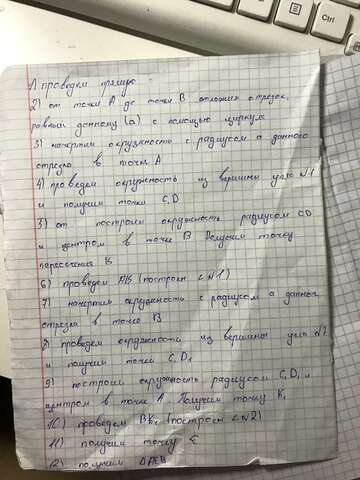 1) проведем прямую
2) от точки А до точки В отложим отрезок,
равный данному (а) с помощью циркуля
3) начертим окружность с радиусом а данного
отрезка в точке А
4) проведем окружность из вершины угла №1
и получим точки C, D
5) от построим окружность радиусом CD
и центром в точке В Получим точку
пересечения К
6) проведем АК (построен ∠N1)
7) начертим окружность с радиусом а данного
отрезка в точке В
8) проведем окружности из вершины угла №2
и получим точки C, D,
9) построим окружность радиусом C, D, и
центром в точке А. Получим точку К,
10) проведем ВК, (построен ∠N2)
11) получим точку Е
12) получим ΔАЕВ